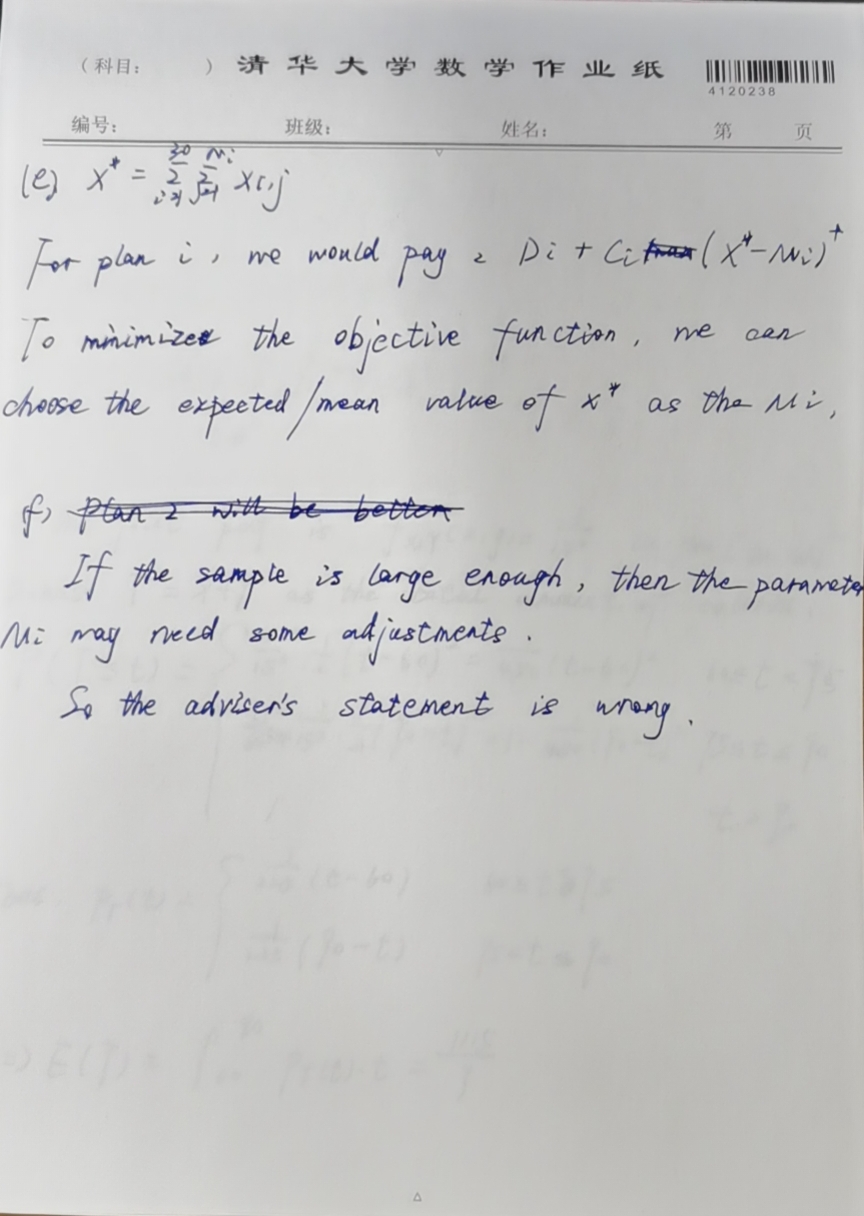 （科目： ） 清华大学数学作业纸
4120238
编号： 班级： 姓名： 第 页
(e) X* = Σ_{i=1}^{30} Σ_{j=1}^{Ni} Xi,j
For plan i, we would pay : Di + Ci (X* - Mi)^+
To minimize the objective function, we can
choose the expected/mean value of X* as the Mi,
f) Plan 2 will be better
If the sample is large enough, then the parameter
Mi may need some adjustments.
So the adviser's statement is wrong.